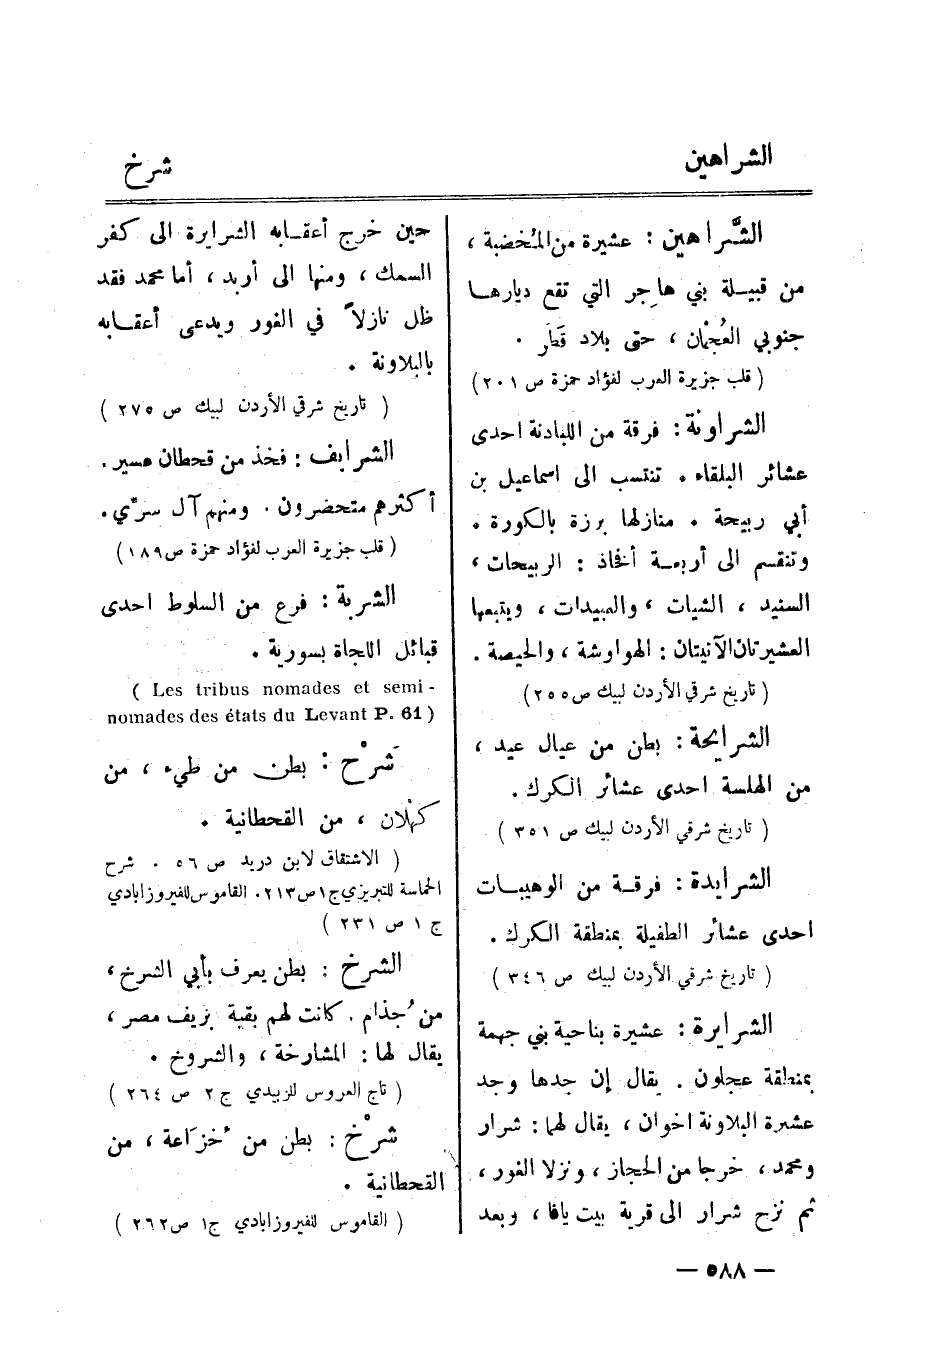 الشراهين
شرخ
الشَّراهين : عشيرة من المُخضبة ،
من قبيـلة بني هاجر التي تقع ديارهـا
جنوبي العُجْمان ، حتى بلاد قَطَر .
( قلب جزيرة العرب لفؤاد حمزة ص ٢٠١ )
الشراونة : فرقة من اللبادنة احدى
عشائر البلقاء . تنتسب الى اسماعيل بن
أبي ربيحة . منازلها برزة بالكورة .
وتنقسم الى أربعـة أفخاذ : الربيحات ،
السنيد ، الثنيات ، والعبيدات ، ويتبعها
العشيرتان الآتيتان : الهواوشة ، والحيصة .
( تاريخ شرقي الأردن لبيك ص ٢٥٥ )
الشرايحة : بطن من عيال عيد ،
من الهلسة احدى عشائر الكرك .
( تاريخ شرقي الأردن لبيك ص ٣٥١ )
الشرايدة : فرقـة من الوهيبـات
احدى عشائر الطفيلة بمنطقة الكرك .
( تاريخ شرقي الأردن لبيك ص ٣٤٦ )
الشرايرة : عشيرة بناحية بني جهمة
بمنطقة عجلون . يقال إن جدها وجد
عشيرة البلاونة اخوان ، يقال لهما : شرار
ومحمد ، خرجا من الحجاز ، ونزلا الغور ،
ثم نزح شرار الى قرية بيت يافا ، وبعد
حين خرج أعقـابه الشرايرة الى كفر
السمك ، ومنها الى أربد ، أما محمد فقد
ظل نازلاً في الغور ويدعى أعقـابه
بالبلاونة .
( تاريخ شرقي الأردن لبيك ص ٢٧٥ )
الشرايف : فخذ من قحطان عسير .
أكثرهم متحضرون . ومنهم آل سرّي .
( قلب جزيرة العرب لفؤاد حمزة ص ١٨٩ )
الشربة : فرع من السلوط احدى
قبائل اللجاة بسورية .
( Les tribus nomades et semi-
nomades des états du Levant P. 61 )
شَرْح : بطن من طيء ، من
كهْلان ، من القحطانية .
( الاشتقاق لابن دريد ص ٥٦ . شرح
الحماسة للتبريزي ج ١ ص ٢١٣ . القاموس للفيروزابادي
ج ١ ص ٢٣١ )
الشرخ : بطن يعرف بأبي الشرخ ،
من جُذام . كانت لهم بقية بريف مصر ،
يقال لها : المشارخة ، والشروخ .
( تاج العروس للزبيدي ج ٢ ص ٢٦٤ )
شرْخ : بطن من خُزَاعة ، من
القحطانية .
( القاموس للفيروزابادي ج ١ ص ٢٦٢ )
— ٥٨٨ —